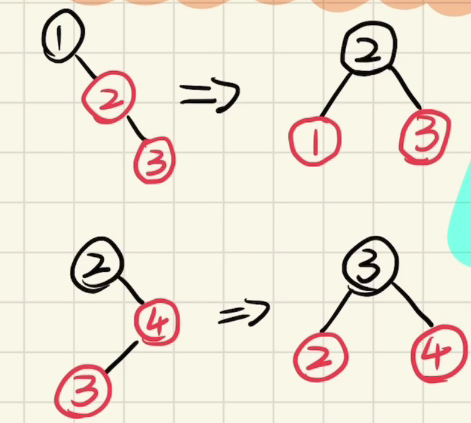 1
2 ⇒ 2
3 1 3
2
4 ⇒ 3
3 2 4